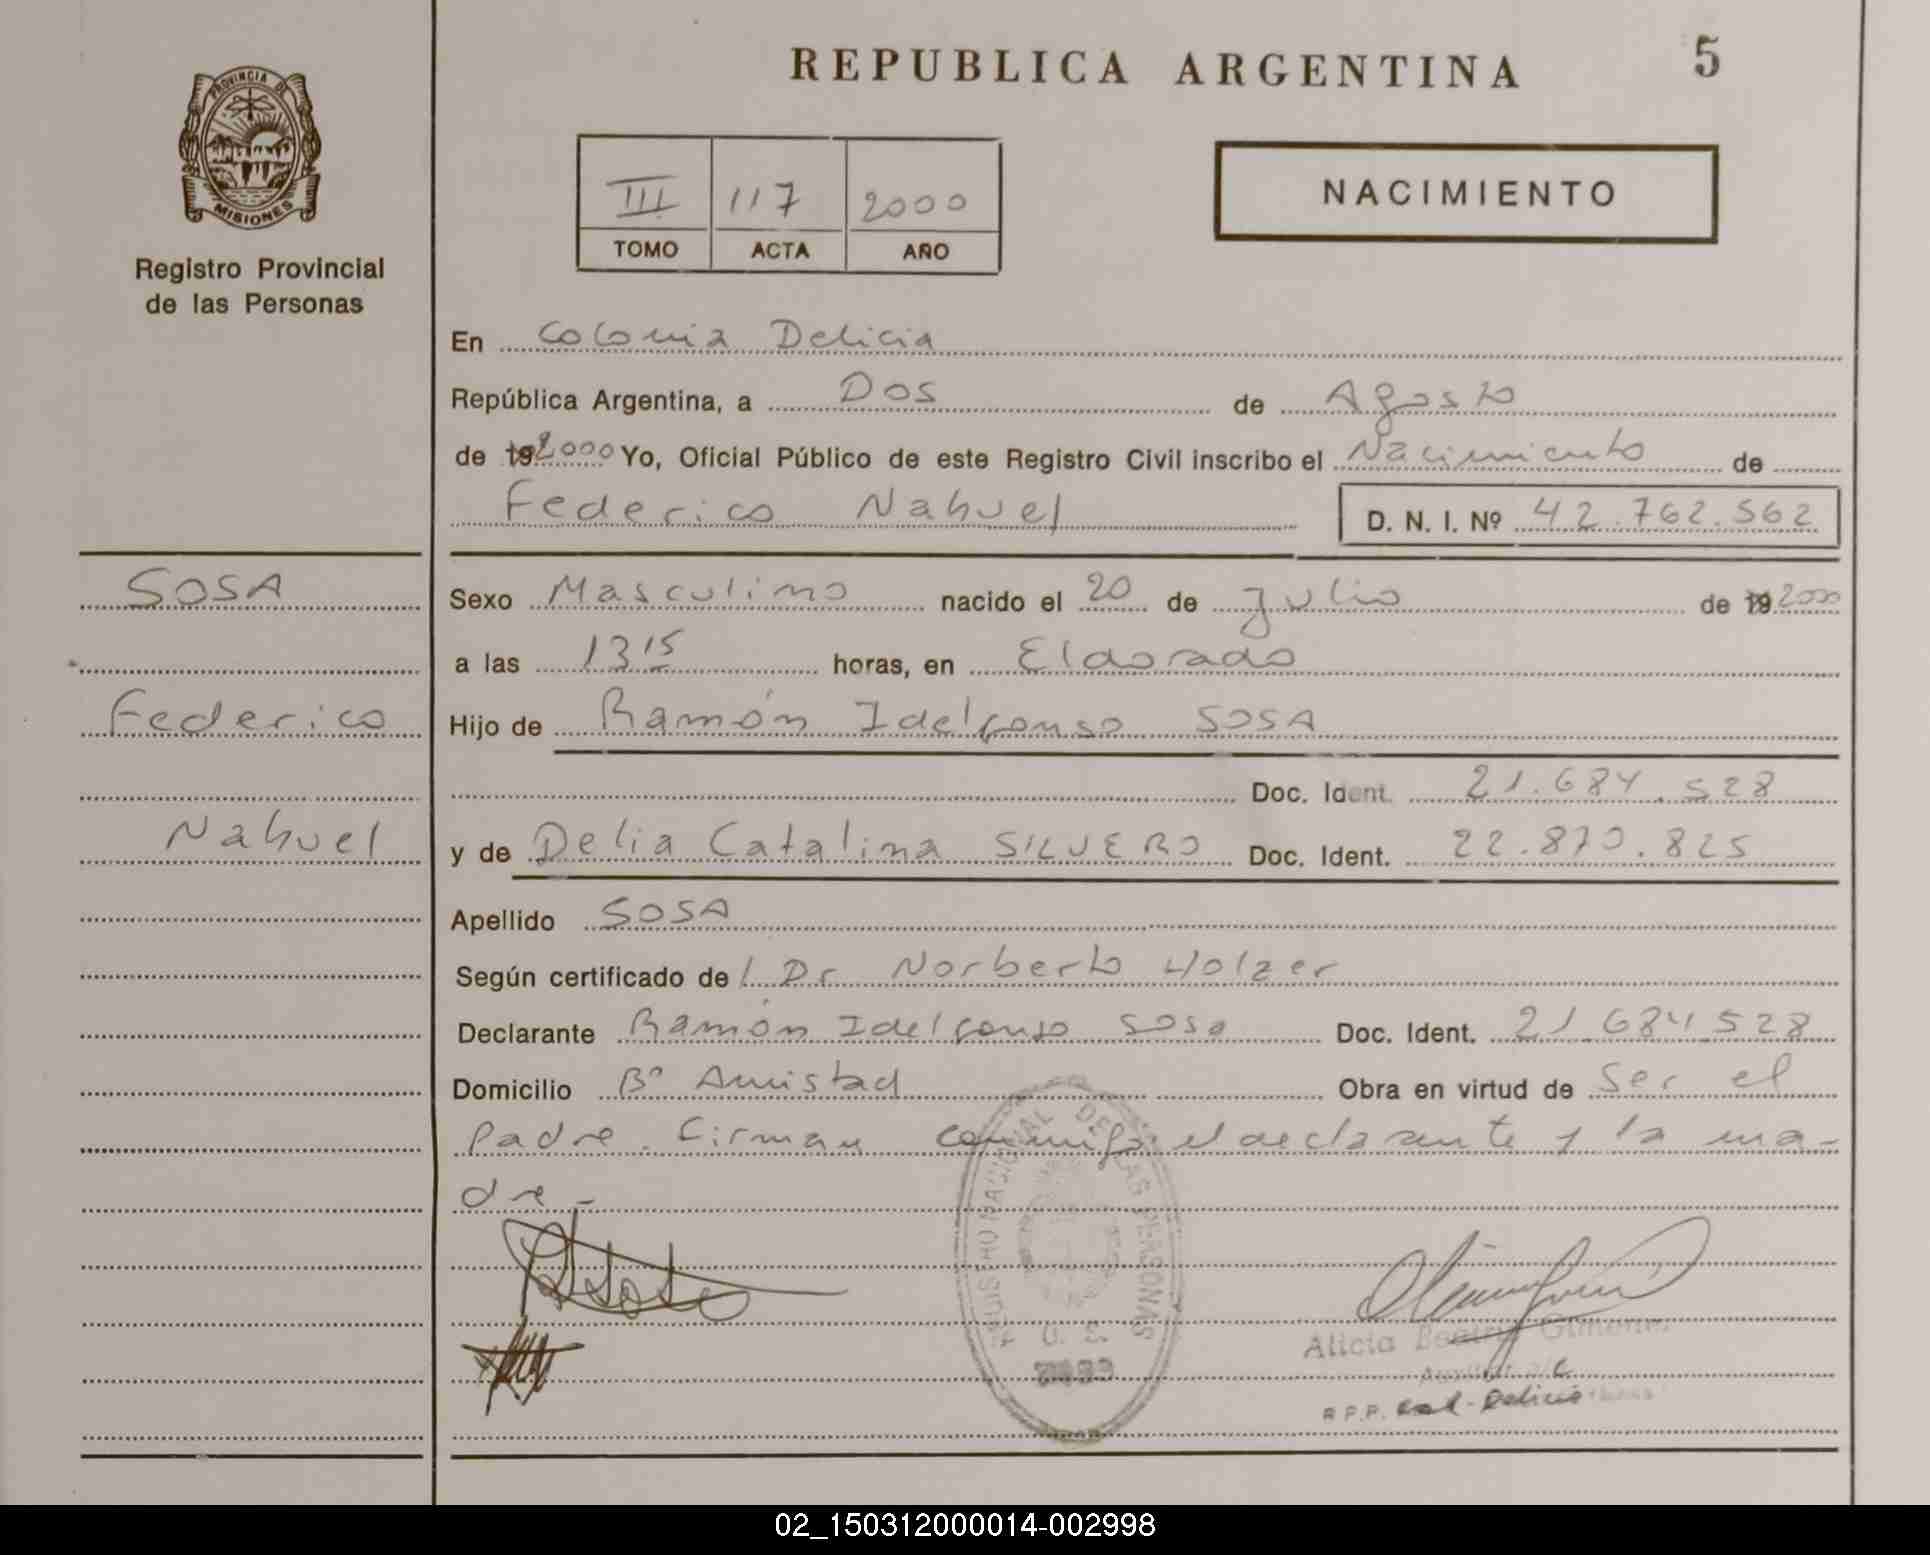 REPUBLICA ARGENTINA
5
PROVINCIA DE
MISIONES
Registro Provincial
de las Personas
III 117 2000
TOMO ACTA AÑO
NACIMIENTO
En Colonia Delicia
República Argentina, a Dos de Agosto
de 19 2000 Yo, Oficial Público de este Registro Civil inscribo el Nacimiento de
Federico Nahuel D. N. I. Nº 42.762.562
SOSA
Federico
Nahuel
Sexo Masculino nacido el 20 de Julio de 19 2000
a las 13 15 horas, en Eldorado
Hijo de Ramón Idelfonso SOSA
Doc. Ident. 21.684.528
y de Delia Catalina SILVERO Doc. Ident. 22.870.825
Apellido SOSA
Según certificado de / Dr Norberto Holzer
Declarante Ramón Idelfonso Sosa Doc. Ident. 21 684 528
Domicilio Bº Amistad Obra en virtud de Ser el
Padre. Firman conmigo el declarante y la ma-
dre-
REGISTRO NACIONAL DE LAS PERSONAS
Sosa
Alicia Beatriz Gimenez
R.P.P. Col-Delicia
02_150312000014-002998